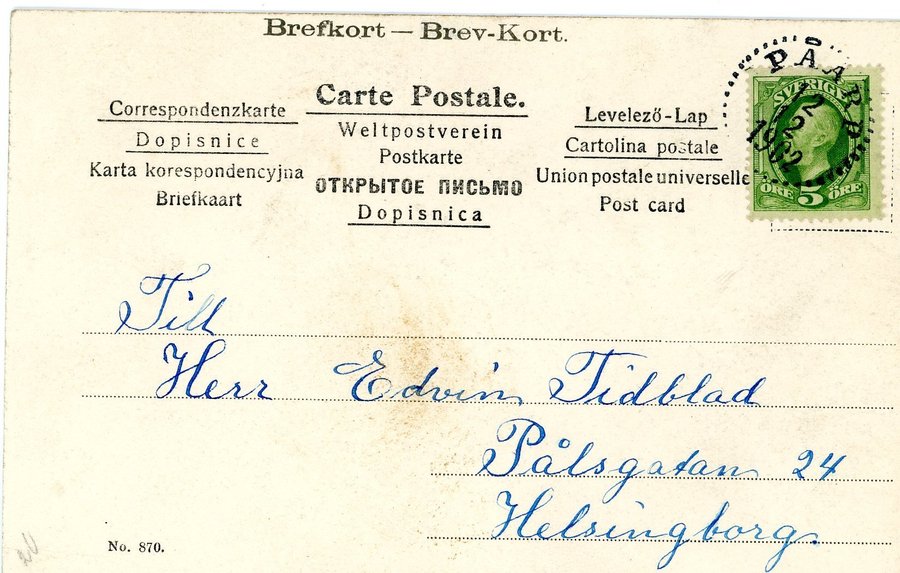 Brefkort — Brev-Kort.
Carte Postale.
Correspondenzkarte
Dopisnice
Karta korespondencyjna
Briefkaart
Weltpostverein
Postkarte
ОТКРЫТОЕ ПИСЬМО
Dopisnica
Levelező-Lap
Cartolina postale
Union postale universelle
Post card
SVERIGE
ÖRE 5 ÖRE
PÅARP
12
2
1902
Till
Herr Edvin Tidblad
Pålsgatan 24
Helsingborg.
No. 870.